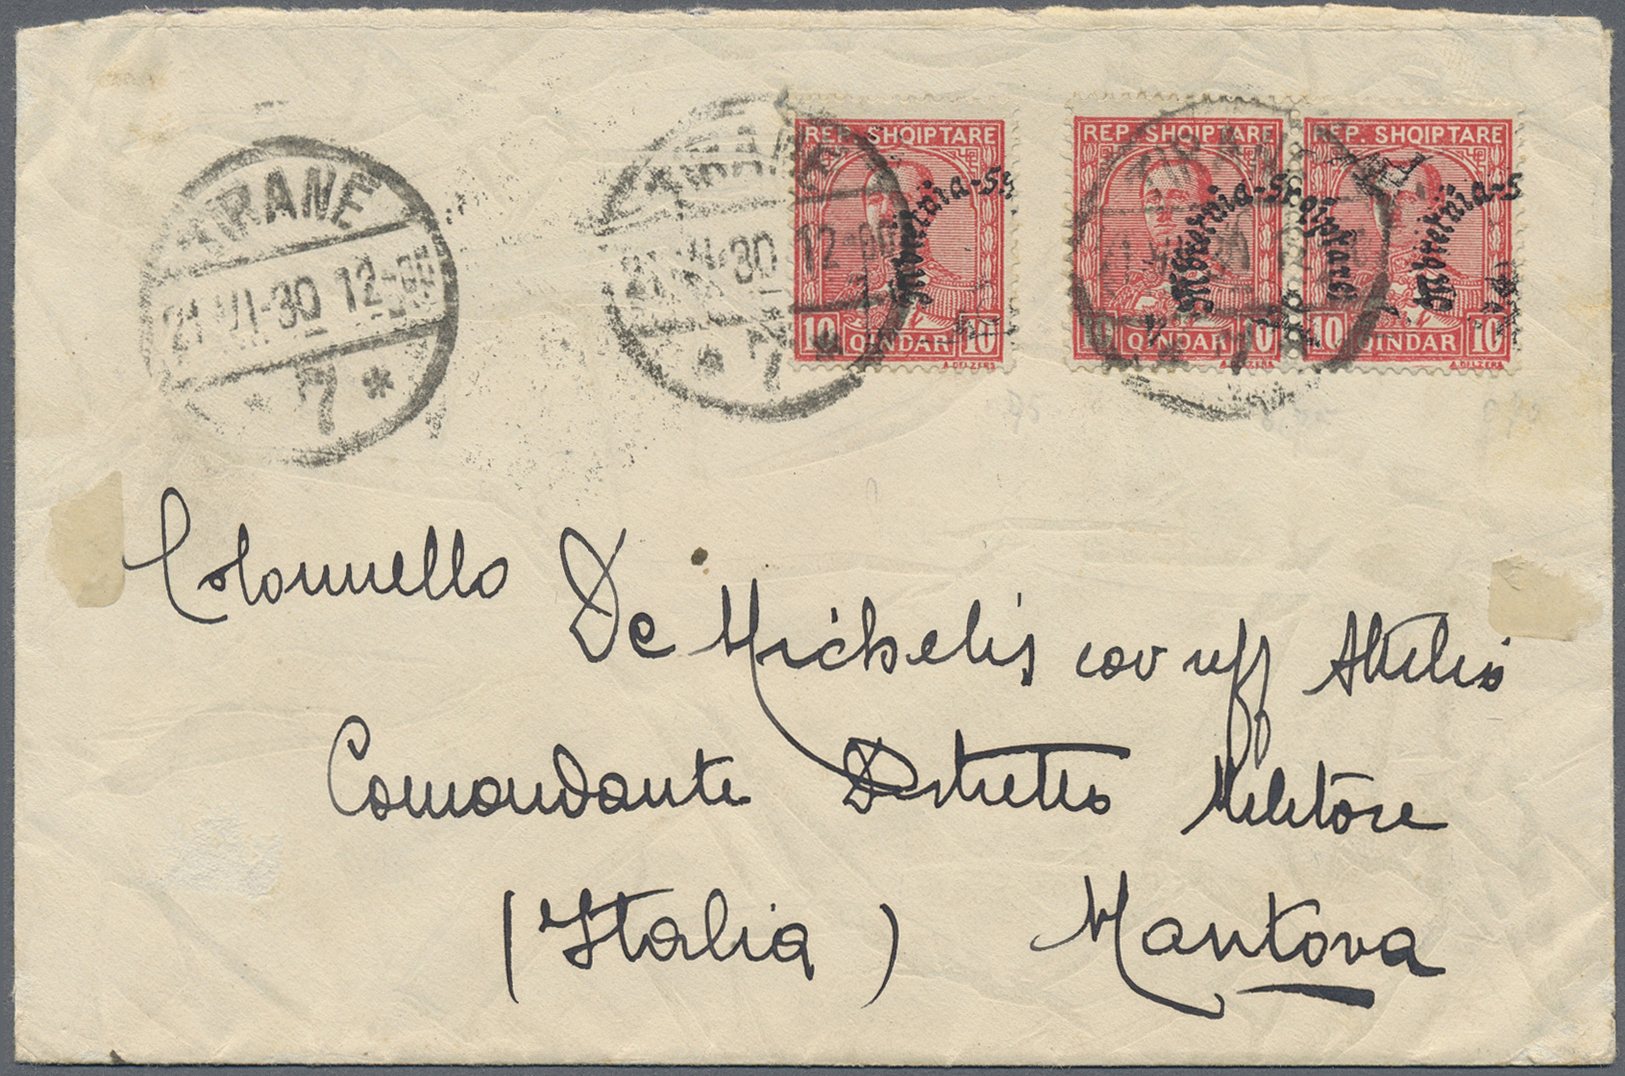 TIRANE
21 VI-30 12-00
* 7 *
TIRANE
21 VI-30 12-00
* 7 *
REP. SHQIPTARE
Mbretnia-Sh
10 QINDAR 10
A. DELZERS
REP. SHQIPTARE
Mbretnia-Shqiptare
10 QINDAR 10
A. DELZERS
REP. SHQIPTARE
Mbretnia-S
10 QINDAR 10
A. DELZERS
Colonnello De Michelis cav uff Attilio
Comandante Distretto Militare
(Italia) Mantova